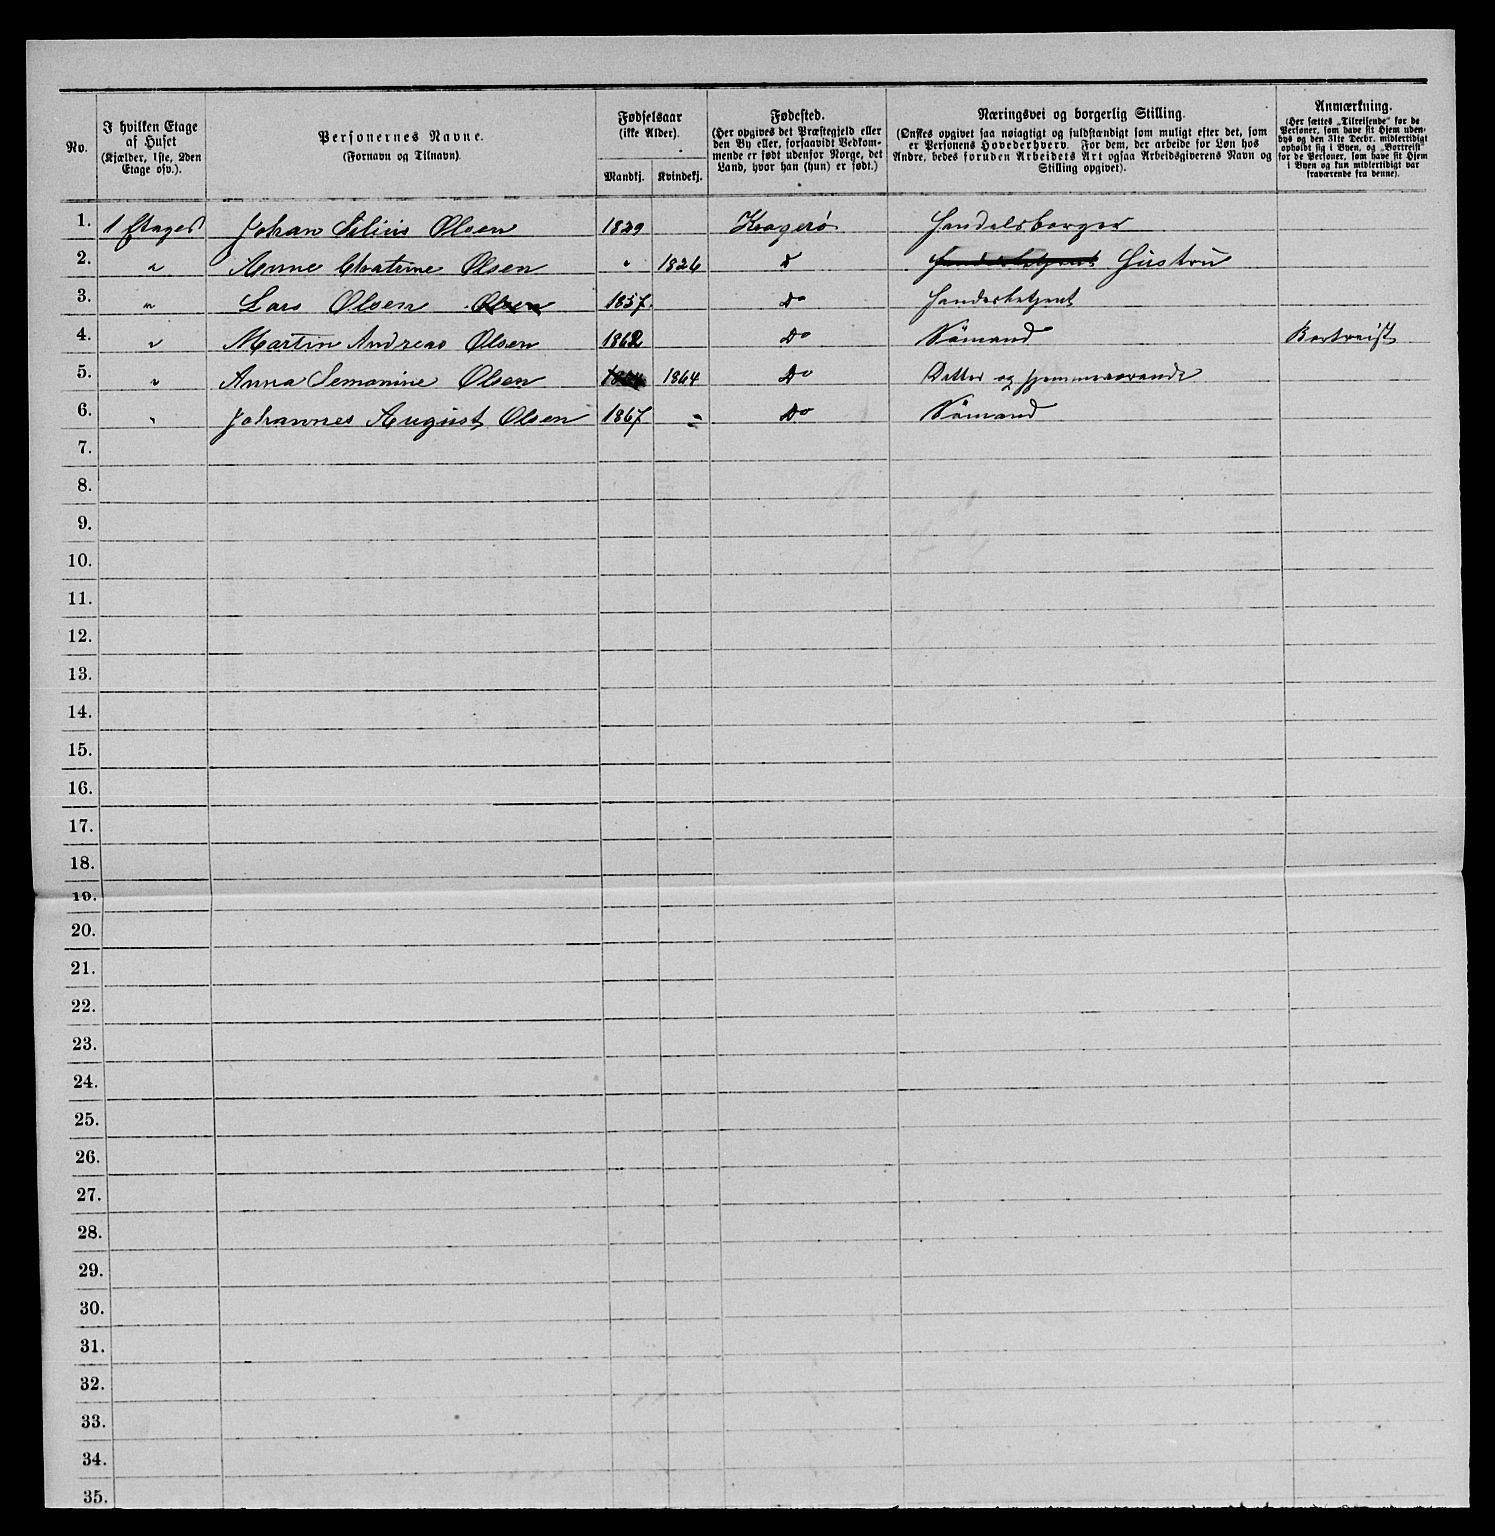 No.
I hvilken Etage
af Huset
(Kjælder, 1ste, 2den
Etage osv.).
Personernes Navne.
(Fornavn og Tilnavn).
Fødselsaar
(ikke Alder).
Mandkj. Kvindekj.
Fødested.
(Her opgives det Præstegjeld eller
den By eller, forsaavidt Vedkom-
mende er født udenfor Norge, det
Land, hvor han (hun) er født.)
Næringsvei og borgerlig Stilling.
(Ønskes opgivet saa nøiagtigt og fuldstændigt som muligt efter det, som
er Personens Hovederhverv. For dem, der arbeide for Løn hos
Andre, bedes foruden Arbeidets Art ogsaa Arbeidsgiverens Navn og
Stilling opgivet).
Anmærkning.
(Her sættes „Tilreisende" for de
Personer, som have sit Hjem uden-
bys og den 31te Decbr. midlertidigt
opholdt sig i Byen, og „Bortreist"
for de Personer, som have sit Hjem
i Byen og kun midlertidigt var
fraværende fra denne).
1. 1 Etages Johan Silius Olsen 1829 Kragerø Handelsborger
2. " Anne Chatrine Olsen " 1826 Do Hustru
3. " Lars Olsen Olsen 1857. Do
4. " Martin Andreas Olsen 1862 Do Sømand Bortreist
5. " Anna Semonine Olsen 1864 1864 Do Datter og hjemmeværende
6. " Johannes August Olsen 1867 = Do Sømand
7.
8.
9.
10.
11.
12.
13.
14.
15.
16.
17.
18.
19.
20.
21.
22.
23.
24.
25.
26.
27.
28.
29.
30.
31.
32.
33.
34.
35.